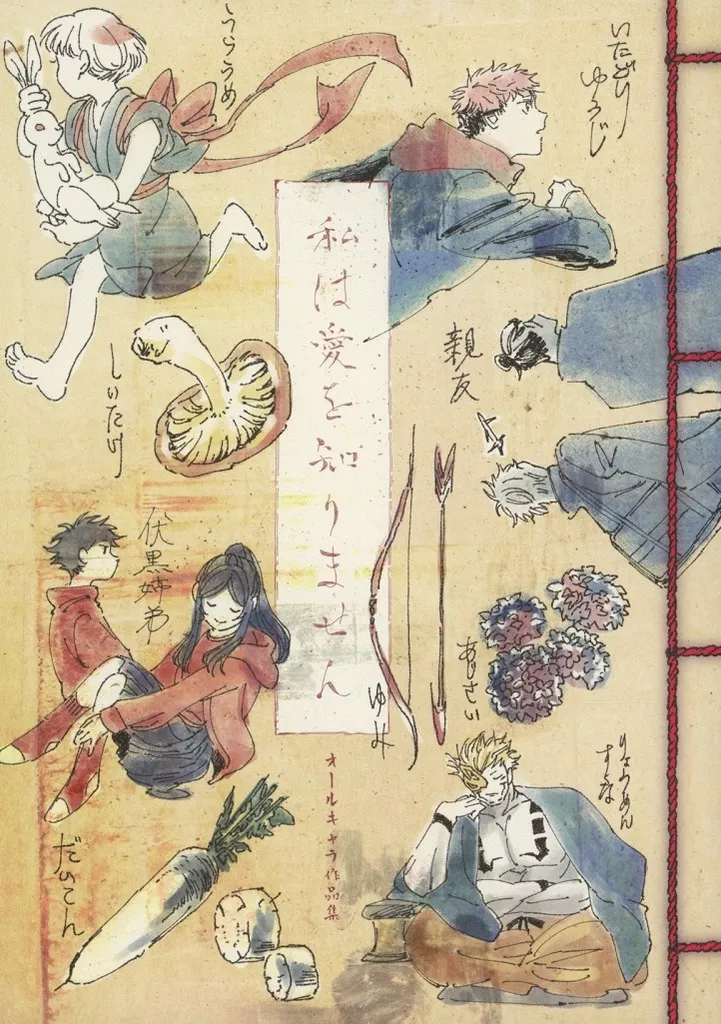 うらうめ
いたどり
ゆうじ
私は愛を知りません
親友
しいたけ
伏黒姉弟
ゆみ
あじさい
オールキャラ作品集
りょうめん
すくな
だいこん